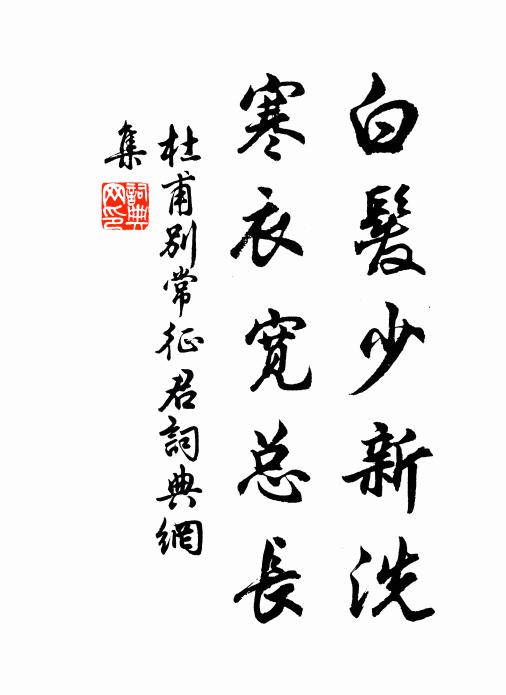 白髮少新洗
寒衣寬总長
杜甫別常征君詞典網
集
詞典
网印